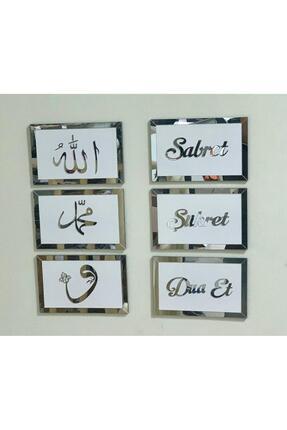 الله
محمد
و
Sabret
Şükret
Dua Et